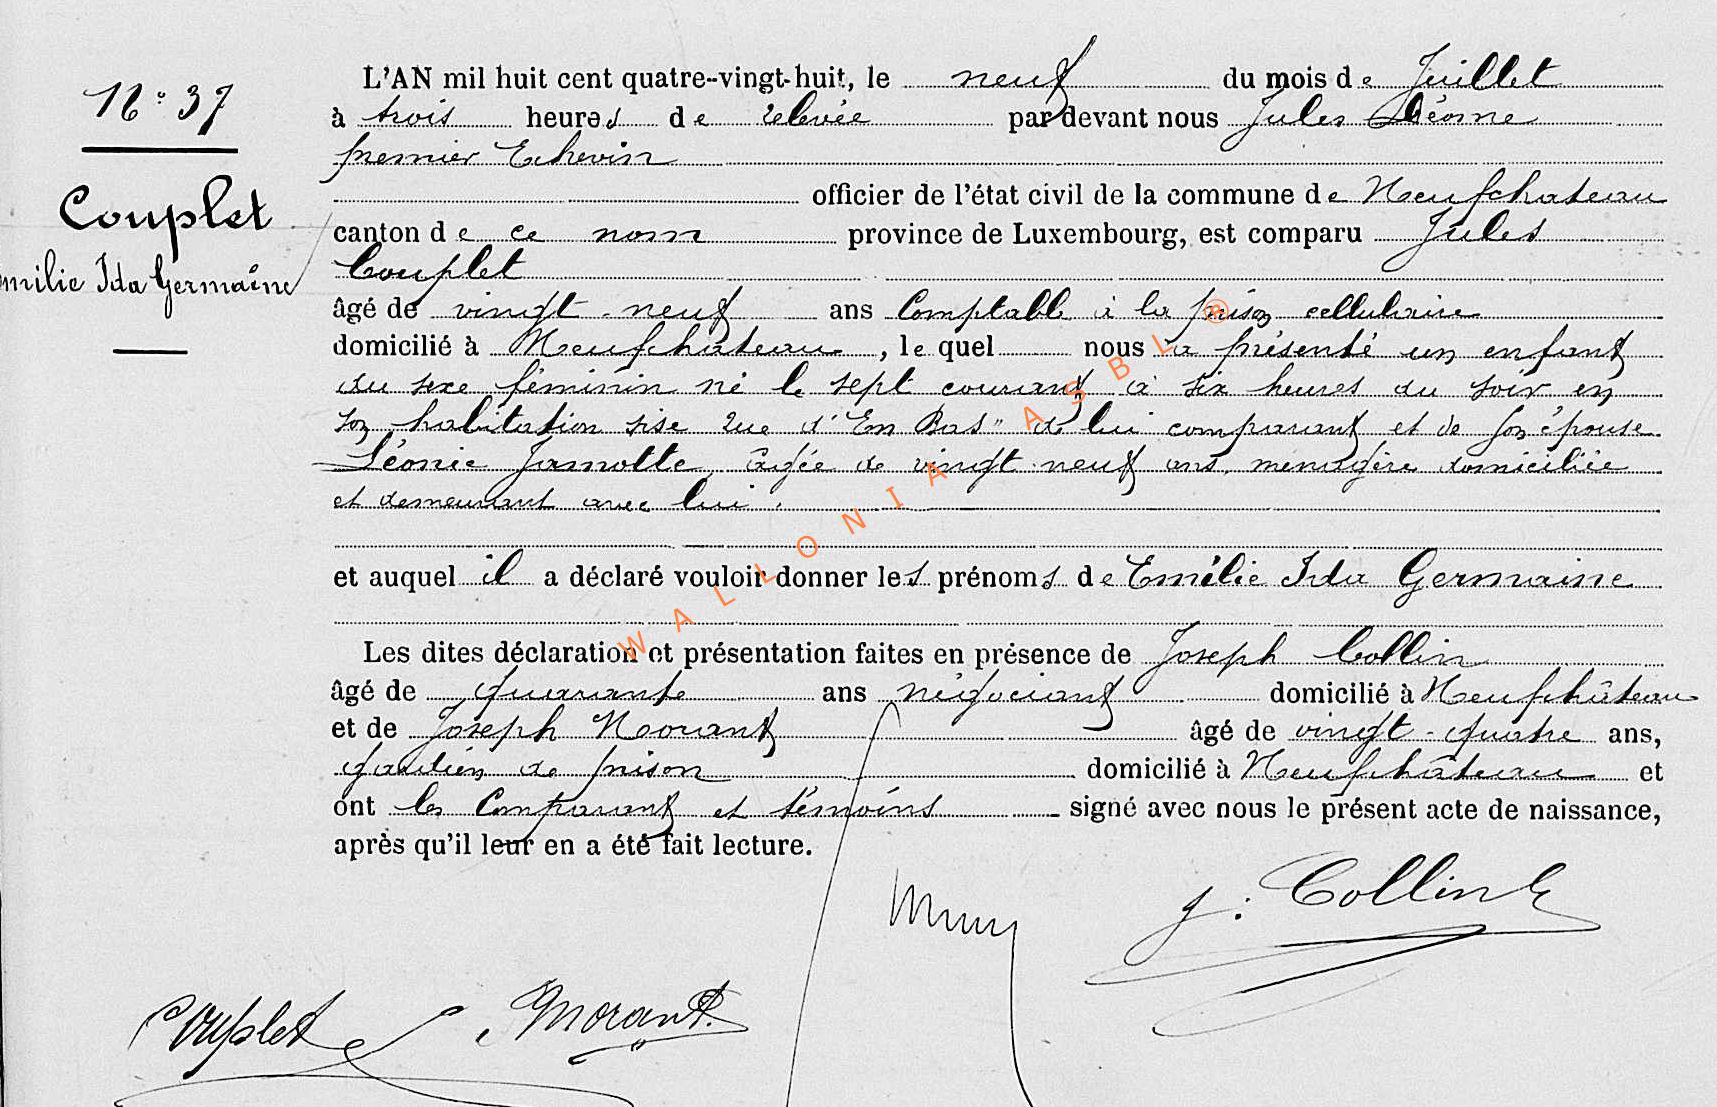 N° 37
Couplet
Emilie Ida Germaine
L'AN mil huit cent quatre-vingt-huit, le neuf du mois de Juillet
à trois heures de relevée par devant nous Jules
premier Echevin
officier de l'état civil de la commune de Neufchateau
canton de ce nom province de Luxembourg, est comparu Jules
Couplet
âgé de vingt-neuf ans Comptable à la prison cellulaire
domicilié à Neufchâteau, lequel nous a présenté un enfant
du sexe féminin né le sept courant à six heures du soir en
son habitation sise rue d'"En Bas" de lui comparant et de son épouse
Léonie Jamotte, âgée de vingt-neuf ans, ménagère domiciliée
et demeurant avec lui.
et auquel il a déclaré vouloir donner les prénoms de Emilie Ida Germaine
Les dites déclaration et présentation faites en présence de Joseph Collin
âgé de quarante ans négociant domicilié à Neufchâteau
et de Joseph Morant âgé de vingt-quatre ans,
gardien de prison domicilié à Neufchâteau et
ont les Comparant et témoins signé avec nous le présent acte de naissance,
après qu'il leur en a été fait lecture.
J. Collin
Couplet Morant
WALLONIA ASBL ®